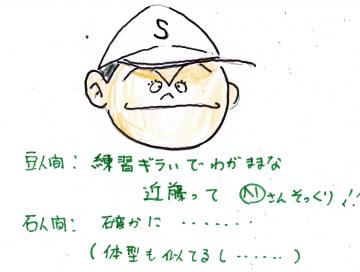 S
豆人間: 練習ギライでわがままな
近藤って Ⓝさんそっくり!!
石人間: 確かに ・・・・・・・
(体型も似てるし・・・・・・)